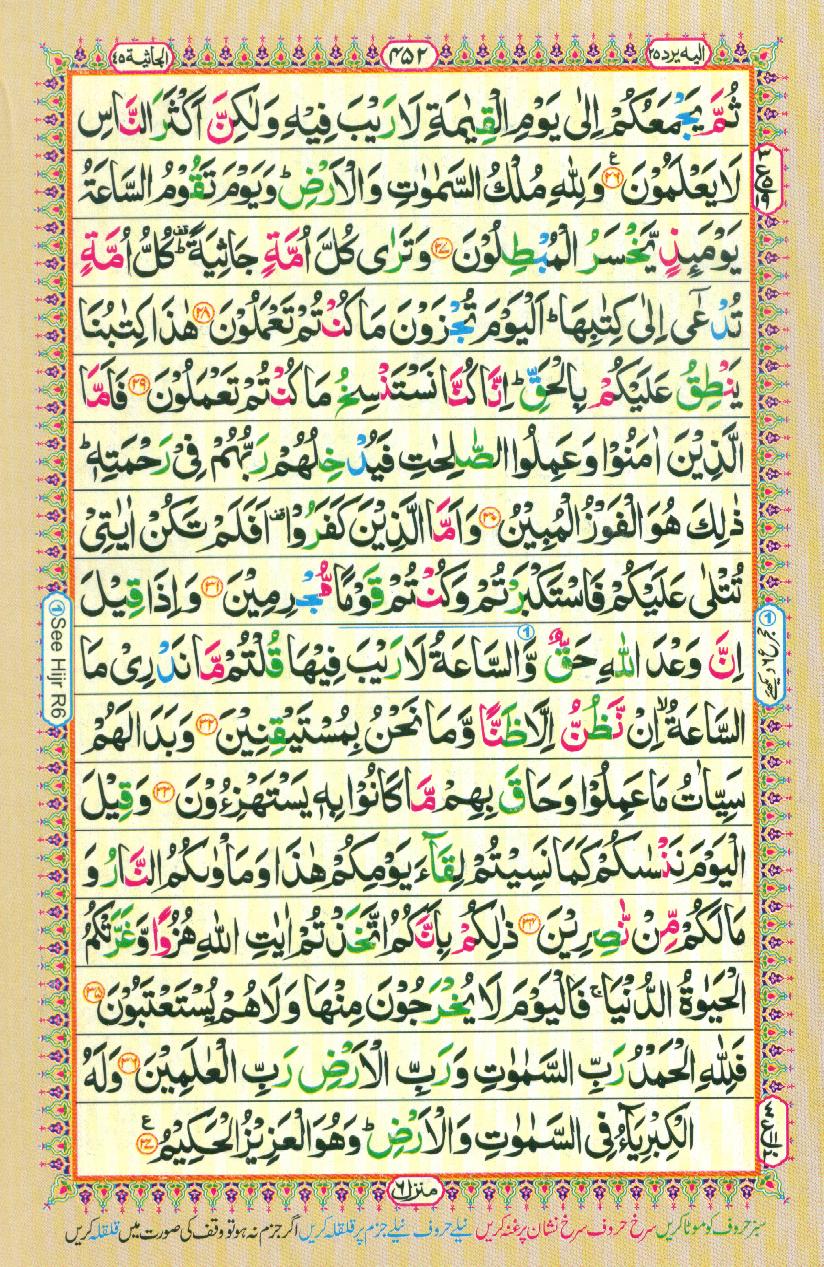 الیه یرد ۲۵
۴۵۲
الجاثیة ۴۵
ثُمَّ یَجْمَعُكُمْ اِلٰى یَوْمِ الْقِیٰمَةِ لَا رَیْبَ فِیْهِ وَلٰكِنَّ اَكْثَرَ النَّاسِ
لَا یَعْلَمُوْنَ ۟۲۶ ع وَلِلّٰهِ مُلْكُ السَّمٰوٰتِ وَالْاَرْضِ ؕ وَیَوْمَ تَقُوْمُ السَّاعَةُ
یَوْمَىِٕذٍ یَّخْسَرُ الْمُبْطِلُوْنَ ۟۲۷ وَتَرٰى كُلَّ اُمَّةٍ جَاثِیَةً ؕ۫ كُلُّ اُمَّةٍ
تُدْعٰۤى اِلٰى كِتٰبِهَا ؕ اَلْیَوْمَ تُجْزَوْنَ مَا كُنْتُمْ تَعْمَلُوْنَ ۟۲۸ هٰذَا كِتٰبُنَا
یَنْطِقُ عَلَیْكُمْ بِالْحَقِّ ؕ اِنَّا كُنَّا نَسْتَنْسِخُ مَا كُنْتُمْ تَعْمَلُوْنَ ۟۲۹ فَاَمَّا
الَّذِیْنَ اٰمَنُوْا وَعَمِلُوا الصّٰلِحٰتِ فَیُدْخِلُهُمْ رَبُّهُمْ فِیْ رَحْمَتِهٖ ؕ
ذٰلِكَ هُوَ الْفَوْزُ الْمُبِیْنُ ۟۳۰ وَاَمَّا الَّذِیْنَ كَفَرُوْا ۫ اَفَلَمْ تَكُنْ اٰیٰتِیْ
تُتْلٰى عَلَیْكُمْ فَاسْتَكْبَرْتُمْ وَكُنْتُمْ قَوْمًا مُّجْرِمِیْنَ ۟۳۱ وَاِذَا قِیْلَ
اِنَّ وَعْدَ اللّٰهِ حَقٌّ وَّالسَّاعَةُ لَا رَیْبَ فِیْهَا قُلْتُمْ مَّا نَدْرِیْ مَا
السَّاعَةُ ۙ اِنْ نَّظُنُّ اِلَّا ظَنًّا وَّمَا نَحْنُ بِمُسْتَیْقِنِیْنَ ۟۳۲ وَبَدَا لَهُمْ
سَیِّاٰتُ مَا عَمِلُوْا وَحَاقَ بِهِمْ مَّا كَانُوْا بِهٖ یَسْتَهْزِءُوْنَ ۟۳۳ وَقِیْلَ
الْیَوْمَ نَنْسٰىكُمْ كَمَا نَسِیْتُمْ لِقَآءَ یَوْمِكُمْ هٰذَا وَمَاْوٰىكُمُ النَّارُ وَ
مَا لَكُمْ مِّنْ نّٰصِرِیْنَ ۟۳۴ ذٰلِكُمْ بِاَنَّكُمُ اتَّخَذْتُمْ اٰیٰتِ اللّٰهِ هُزُوًا وَّغَرَّتْكُمُ
الْحَیٰوةُ الدُّنْیَا ۚ فَالْیَوْمَ لَا یُخْرَجُوْنَ مِنْهَا وَلَا هُمْ یُسْتَعْتَبُوْنَ ۟۳۵
فَلِلّٰهِ الْحَمْدُ رَبِّ السَّمٰوٰتِ وَرَبِّ الْاَرْضِ رَبِّ الْعٰلَمِیْنَ ۟۳۶ وَلَهُ
الْكِبْرِیَآءُ فِی السَّمٰوٰتِ وَالْاَرْضِ ؕ وَهُوَ الْعَزِیْزُ الْحَكِیْمُ ۟۳۷ ع
① See Hijr R6
منزل ۶
سبز حروف کو موٹا کریں سرخ حروف سرخ نشان پر غنہ کریں نیلے حروف نیلے جزم پر قلقلہ کریں اگر جزم نہ ہو تو وقف کی صورت میں قلقلہ کریں